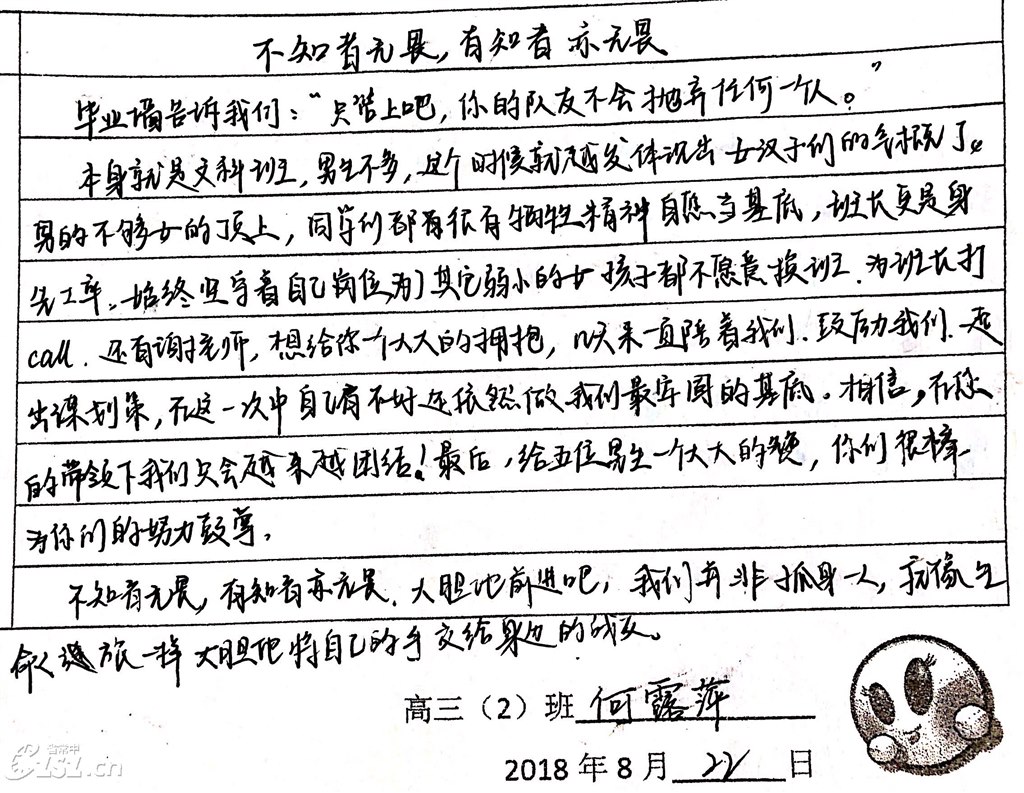 不知者无畏，有知者亦无畏
毕业墙告诉我们：“只管上吧，你的队友不会抛弃任何一个人。”
本身就是文科班，男生不多，这个时候就越发体现出女汉子们的气概了。
男的不够女的顶上，同学们都有很有牺牲精神自愿当基底，班长更是身
先士卒。始终坚守着自己岗位，为了其它弱小的女孩子都不愿意换班．为班长打
call．还有谢老师，想给你一个大大的拥抱，以来一直陪着我们．鼓励我们．一起
出谋划策，在这一次中自己有不好还依然做我们最牢固的基底。相信，在您
的带领下我们只会越来越团结！最后，给五位男生一个大大的，你们很棒
为你们的努力鼓掌，
不知者无畏，有知者亦无畏．大胆地前进吧，我们并非孤身一人，就像生
命之旅一样大胆地将自己的手交给身边的战友。
高三（2）班何露萍
2018年8月22日
省常中
CZ1Z1.cn